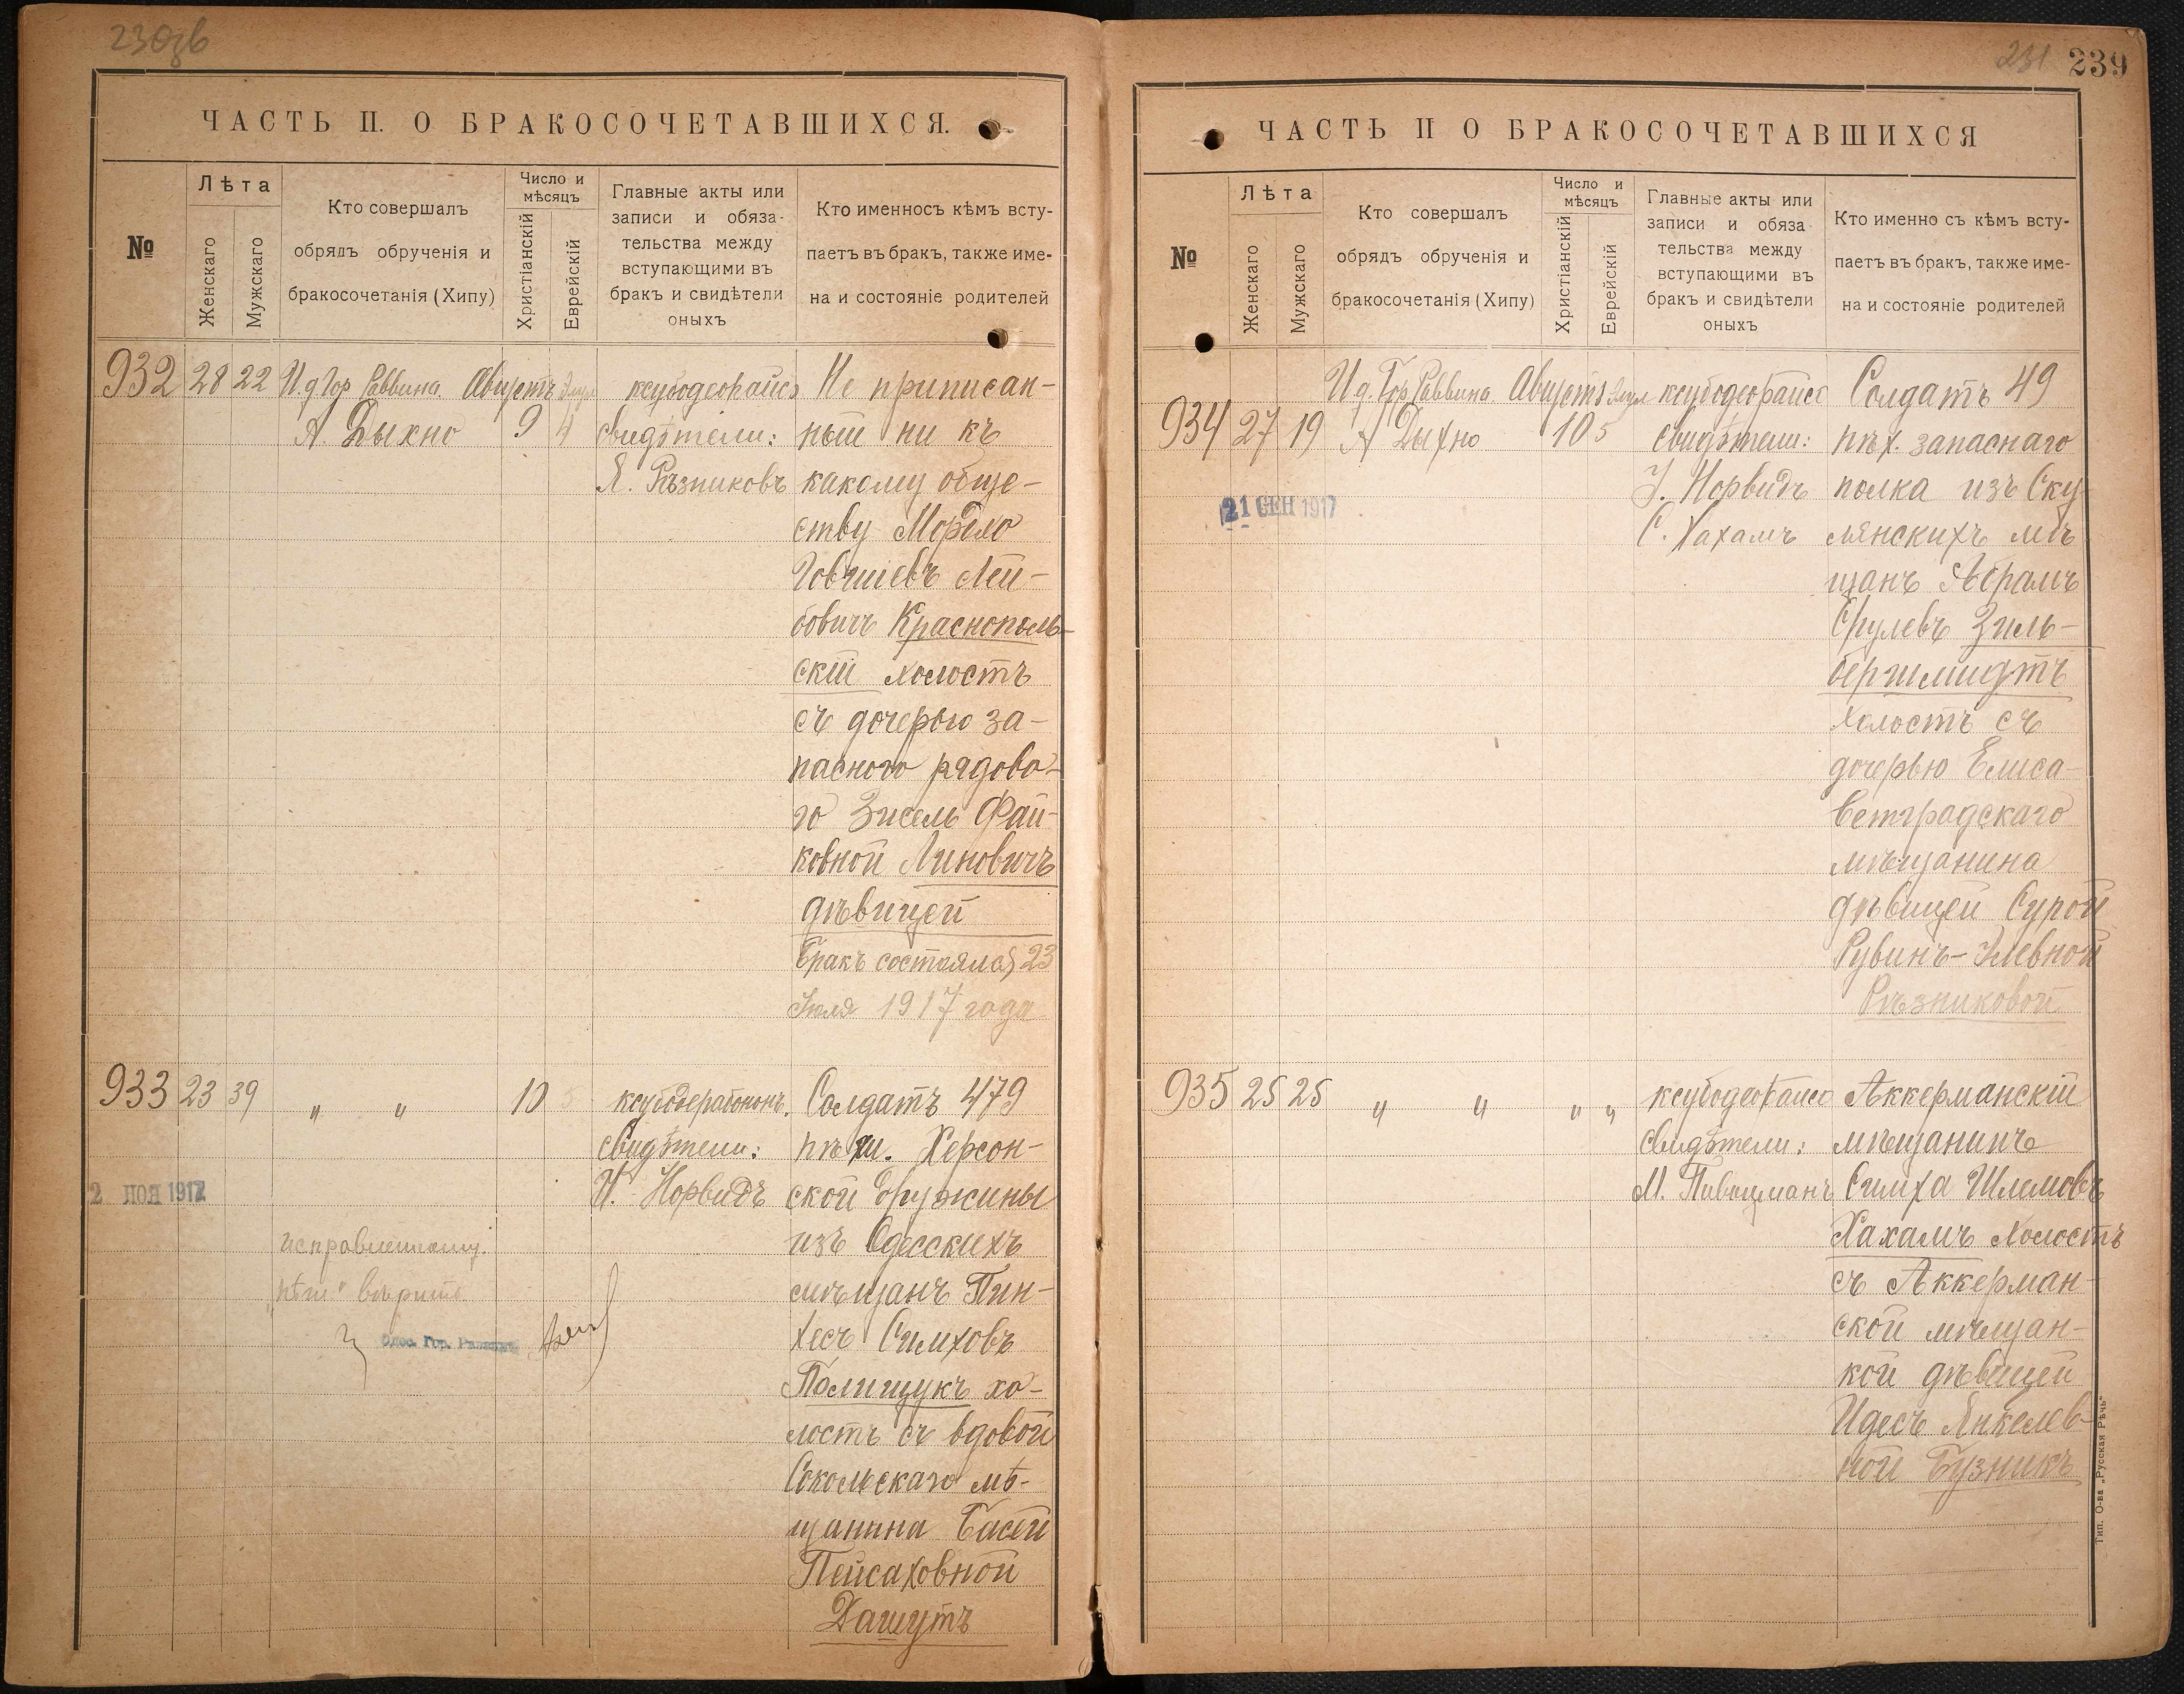 230зв
ЧАСТЬ II. О БРАКОСОЧЕТАВШИХСЯ.
№
Лѣта
Женскаго
Мужскаго
Кто совершалъ
обрядъ обрученія и
бракосочетанія (Хипу)
Число и
мѣсяцъ
Христіанскій
Еврейскій
Главные акты или
записи и обяза-
тельства между
вступающими въ
бракъ и свидѣтели
оныхъ
Кто именносъ кѣмъ всту-
паетъ въ бракъ, также име-
на и состояніе родителей
932 28 22 И д Гор Раввина Августъ
А. Дыхно 9 4
ксубодеорайсо
свидѣтели:
Я. Рѣзниковъ
Не приписан-
ный ни къ
какому обще-
ству Мордко
Говшіевъ Лей-
бовичъ Краснополь-
скій холостъ
съ дочерью за-
пасного рядово-
го Зисель Фай-
ковной Линовичъ
дѣвицей
Бракъ состоялся 23
Іюля 1917 года
933 23 39 " " 10 5
свидѣтели:
И. Норвидъ
Солдатъ 479
пѣш. Херсон-
ской дружины
изъ Одесскихъ
мѣщанъ Пин-
хесъ Симховъ
Полищукъ хо-
лостъ съ вдовой
Сокольскаго мѣ-
щанина Басей
Пейсаховной
Дашутъ
2 НОЯ 1917
исправленному
"пѣш" вѣрить.
Одес. Гор. Раввинъ
231 239
ЧАСТЬ II О БРАКОСОЧЕТАВШИХСЯ
№
Лѣта
Женскаго
Мужскаго
Кто совершалъ
обрядъ обрученія и
бракосочетанія (Хипу)
Число и
мѣсяцъ
Христіанскій
Еврейскій
Главные акты или
записи и обяза
тельства между
вступающими въ
бракъ и свидѣтели
оныхъ
Кто именно съ кѣмъ всту-
паетъ въ бракъ, также име-
на и состояніе родителей
934 27 19 И д. Гор Раввина Августъ
А Дыхно 10 5
ксубодеорайсо
свидѣтели:
Норвидъ
С. Хахамъ
Солдатъ 49
пѣх. запаснаго
полка изъ Ску
лянскихъ мѣ
щанъ Абрамъ
Срулевъ Зиль-
бершмидтъ
холостъ съ
дочерью Елиса-
ветградскаго
мѣщанина
дѣвицей Сурой
Рувинъ-Илевной
Рѣзниковой
21 СЕН 1917
935 25 25 " " " "
ксубодеорайсо
свидѣтели:
М. Пивоцманъ
Аккерманскій
мѣщанинъ
Симха Шлемовъ
Хахамъ холостъ
съ Аккерман-
ской мѣщан-
кой дѣвицей
Идесъ Янкелев-
ной Бузникъ
Тип. О-ва „Русская Рѣчь"